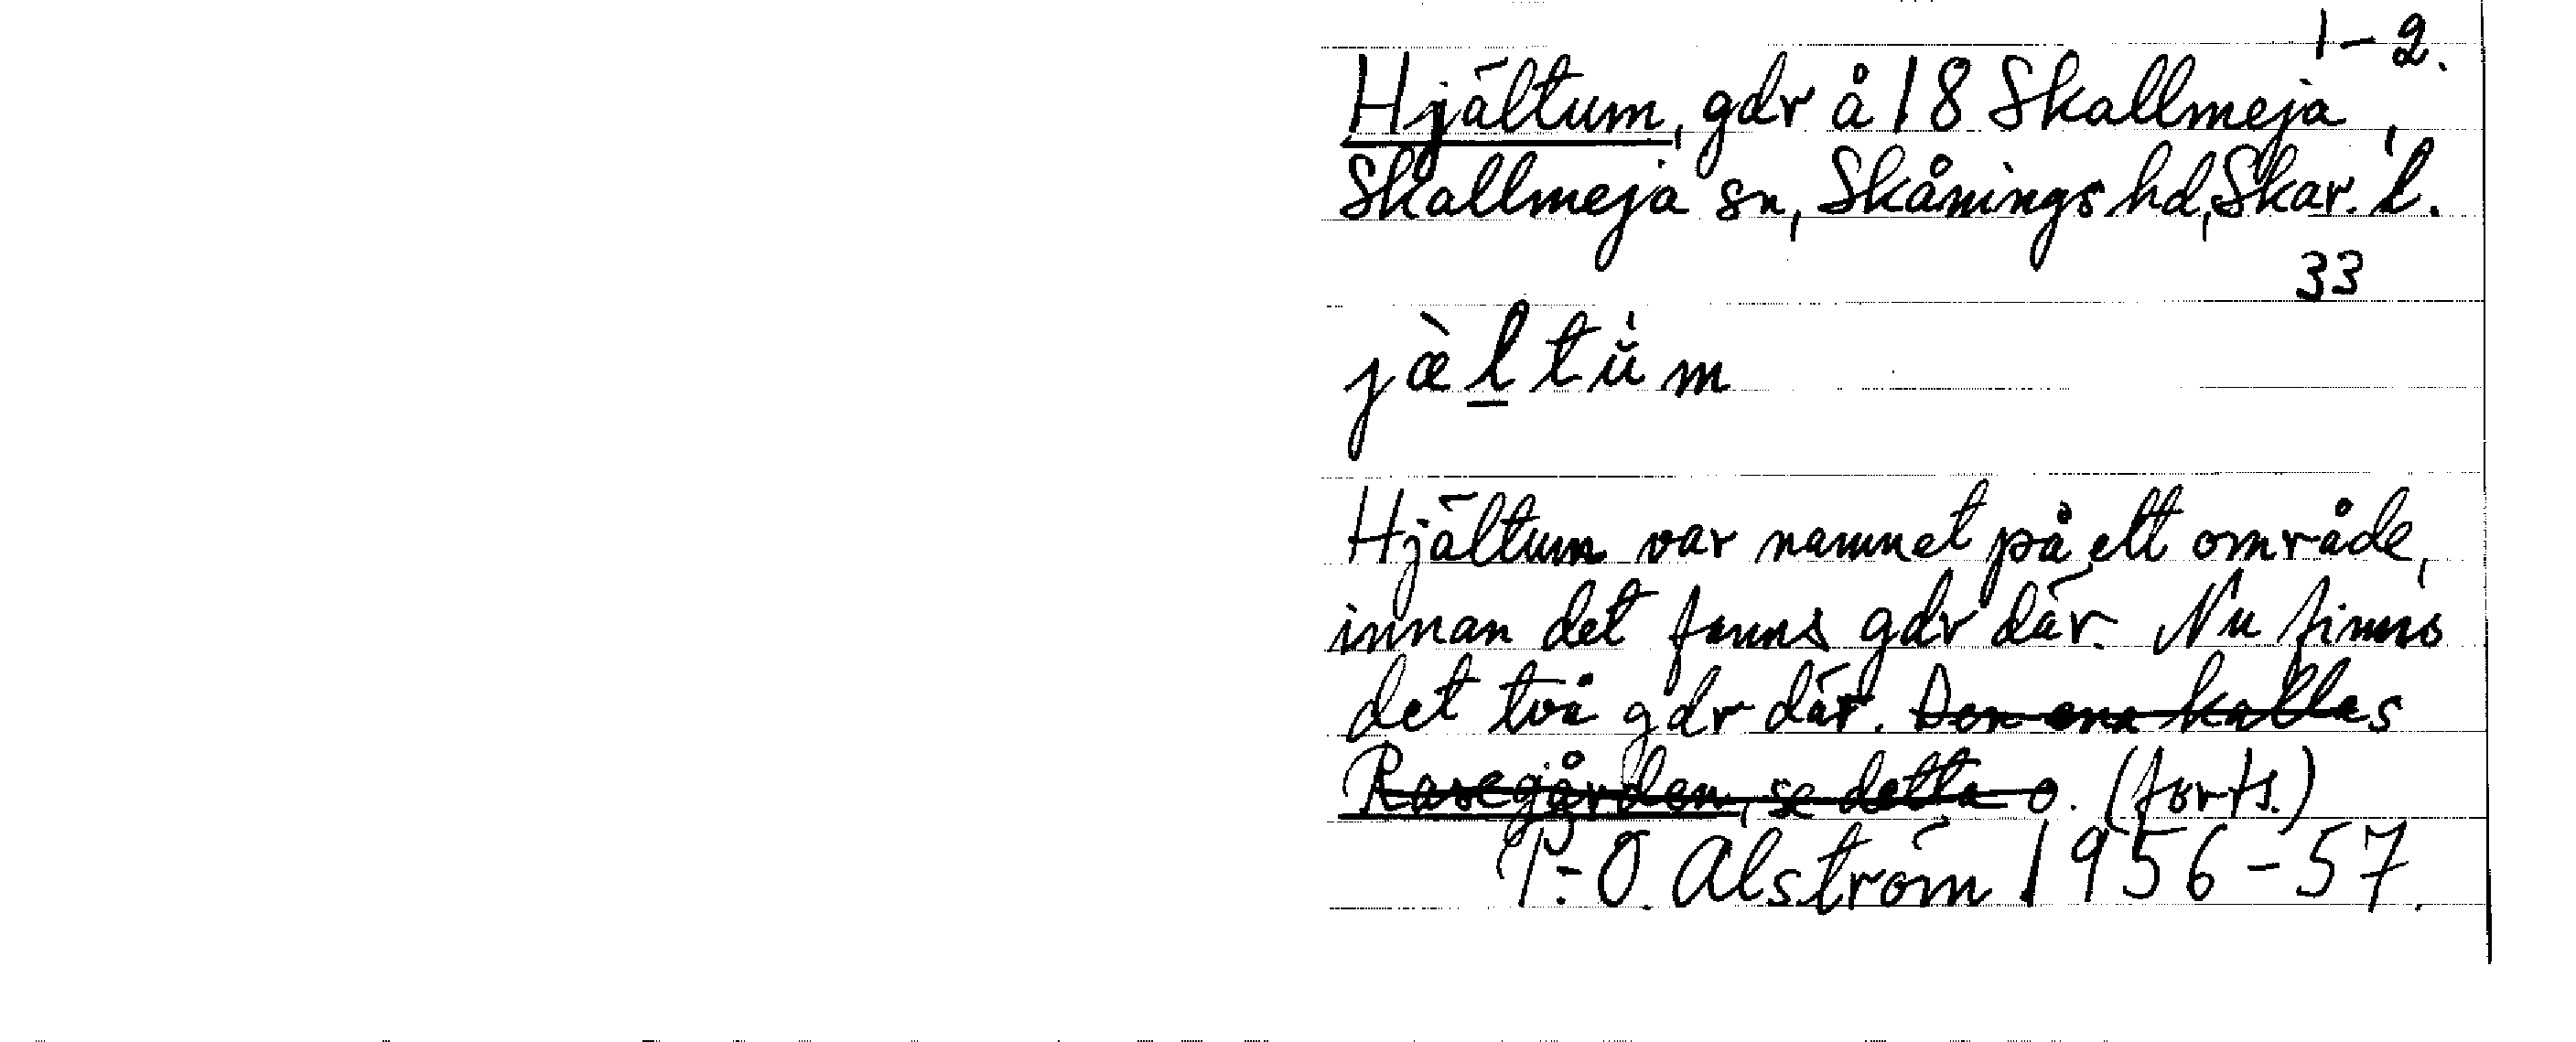 1-2.
Hjältum, gdr å 18 Skallmeja,
Skallmeja sn, Skånings hd, Skar. l.
33
jæ̀ltŭ̍m
Hjältum var namnet på ett område,
innan det fanns gdr där. Nu finns
det två gdr där. Den ena kallas
Rasegården, se detta o. (forts.)
P.-O. Alström 1956-57.